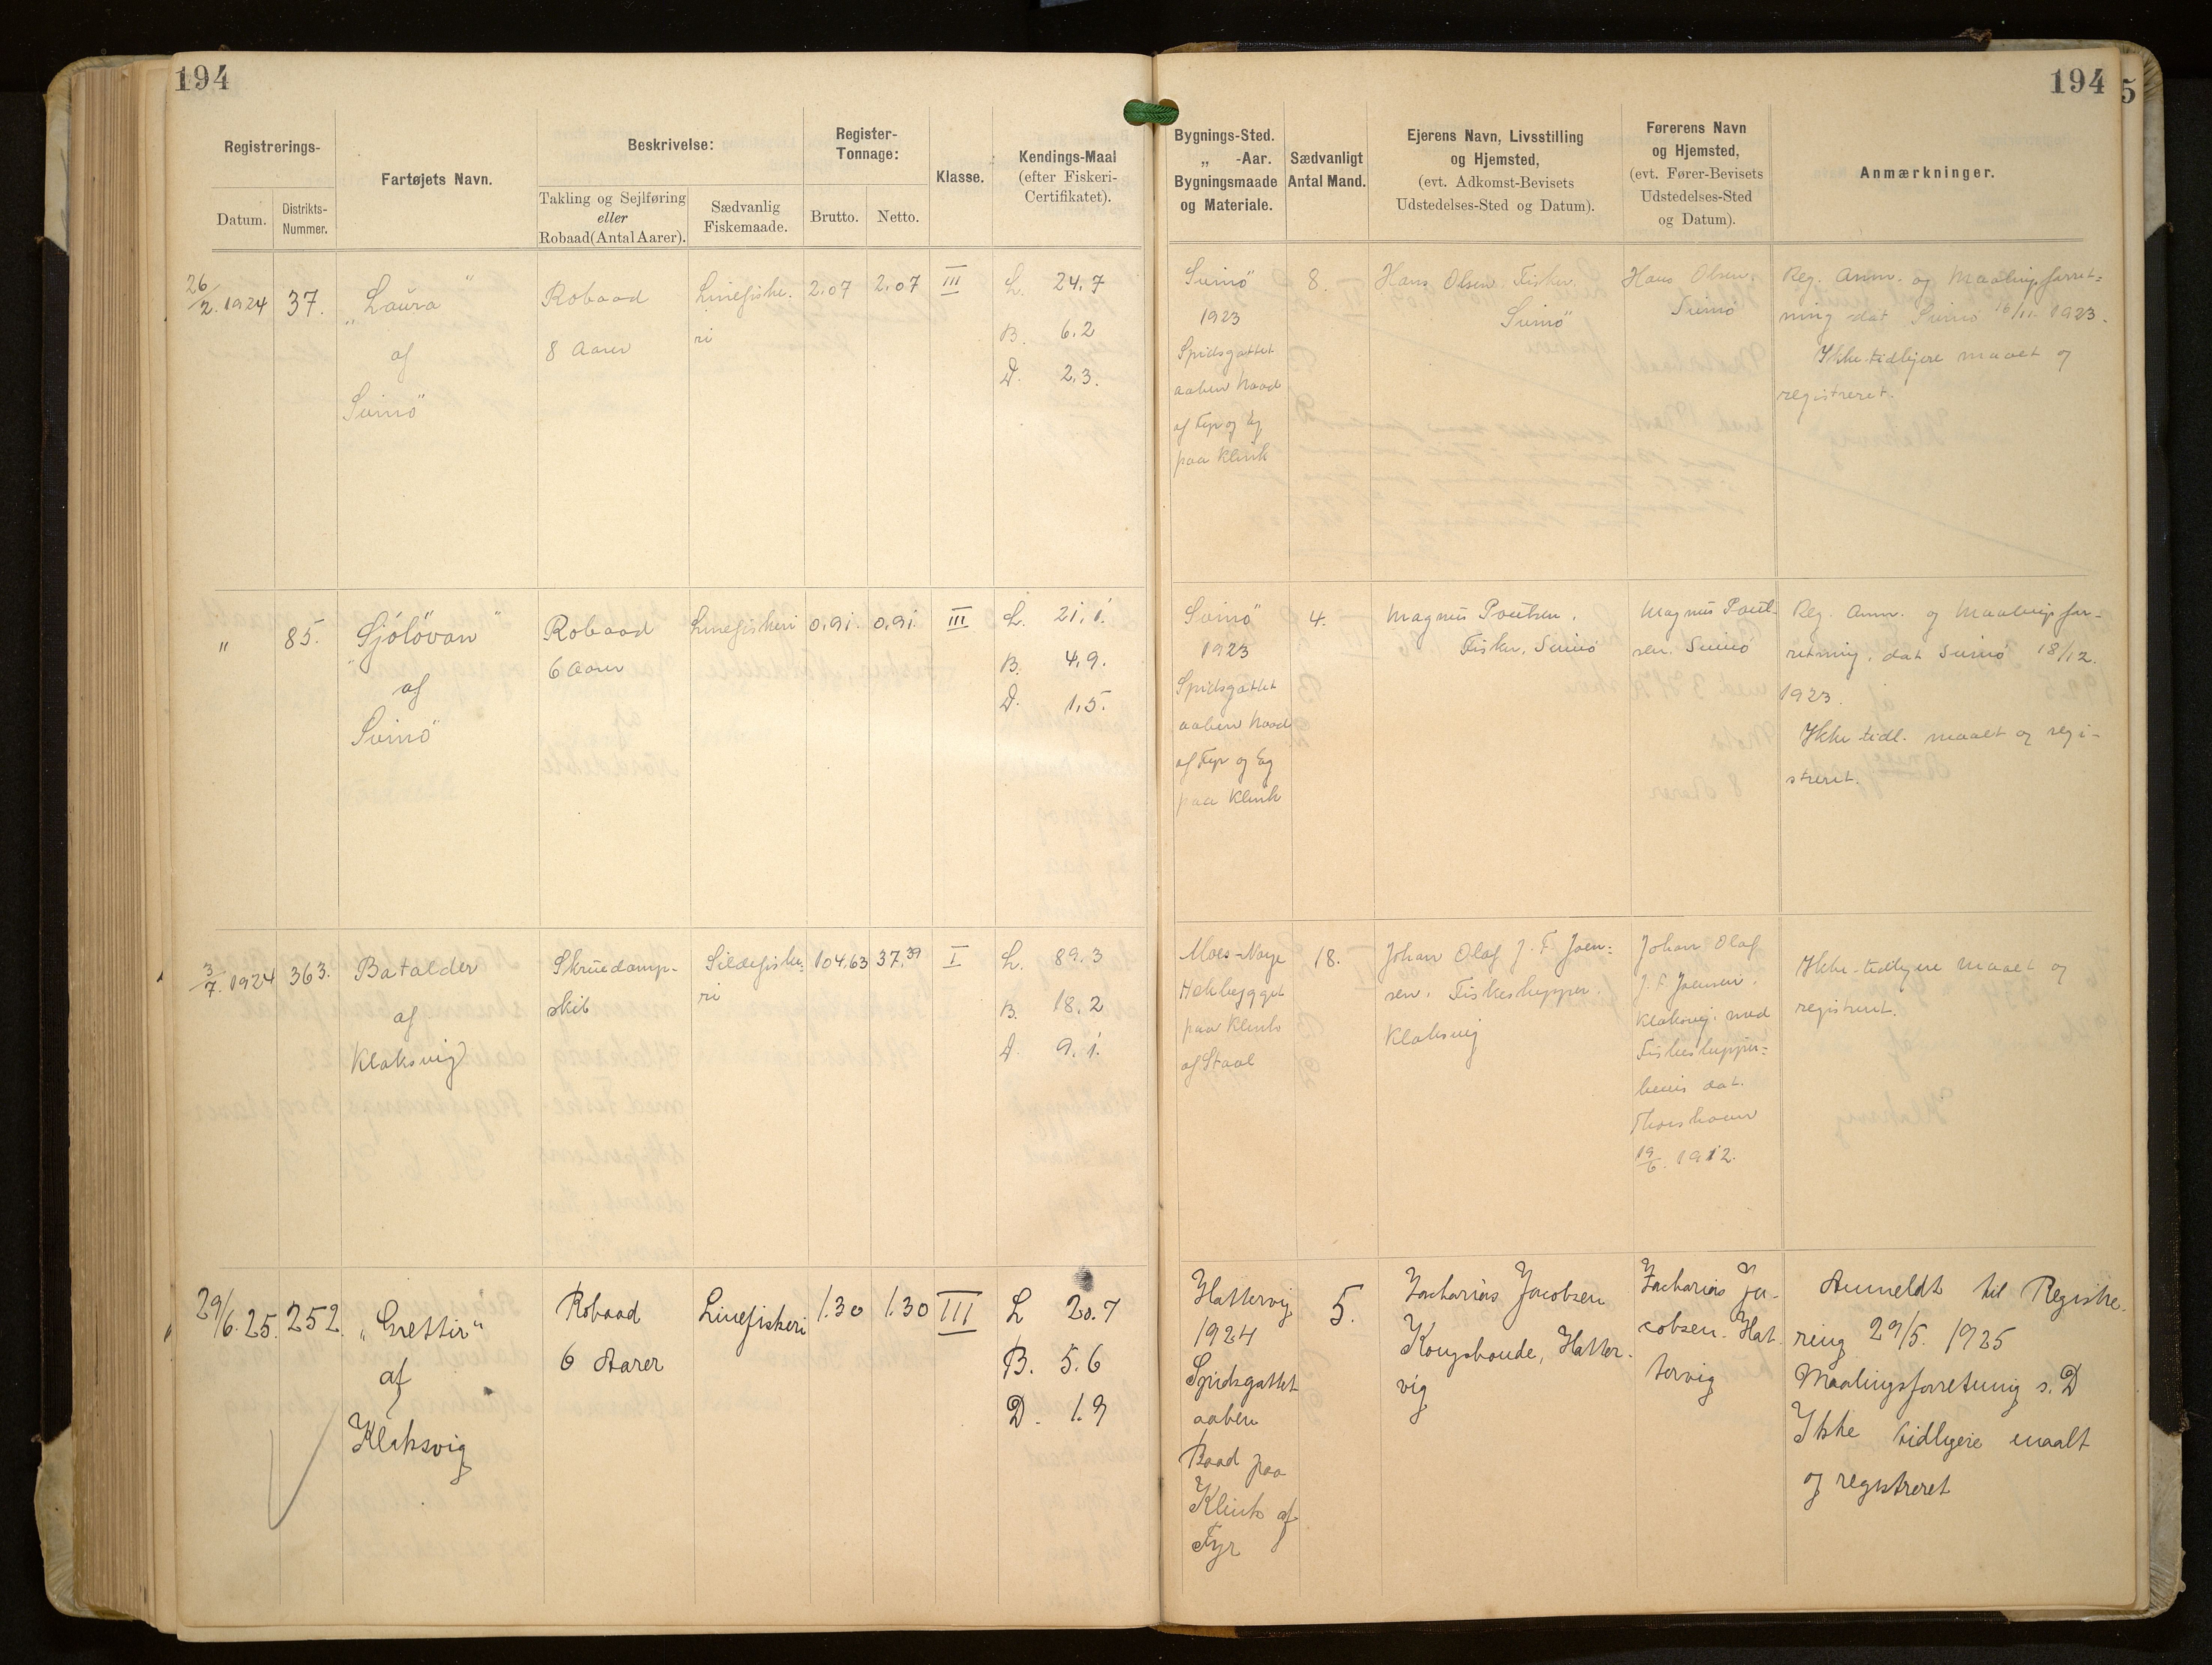 194
194
5
Registrerings-
Datum.
Distrikts-
Nummer.
Fartøjets Navn.
Beskrivelse:
Takling og Sejlføring
eller
Robaad (Antal Aarer).
Sædvanlig
Fiskemaade.
Register-
Tonnage:
Brutto.
Netto.
Klasse.
Kendings-Maal
(efter Fiskeri-
Certifikatet).
Bygnings-Sted.
„ -Aar.
Bygningsmaade
og Materiale.
Sædvanligt
Antal Mand.
Ejerens Navn, Livsstilling
og Hjemsted,
(evt. Adkomst-Bevisets
Udstedelses-Sted og Datum).
Førerens Navn
og Hjemsted,
(evt. Fører-Bevisets
Udstedelses-Sted
og Datum).
Anmærkninger.
26/2. 1924
37.
„Laura"
af
Svinö
Robaad
8 Aarer
Linefiske-
ri
2.07
2.07
III
L. 24.7
B. 6.2
D. 2.3.
Svinö
1923
Spidsgattet
aaben Baad
af Fyr og Eg
paa Klink
8.
Hans Olsen. Fisker.
Svinö
Hans Olsen.
Svinö
Reg. Anm. og Maalingsforret-
ning dat Svinö 16/11. 1923.
Ikke tidligere maalt og
registreret.
"
85.
„Sjólövan"
af
Svinö
Robaad
6 Aarer
Linefiskeri
0.91.
0.91.
III
L. 21.1.
B. 4.9.
D. 1.5.
Svinö
1923
Spidsgattet
aaben Baad
af Fyr og Eg
paa Klink
4.
Magnus Poulsen.
Fisker, Svinö
Magnus Poul-
sen. Svinö
Reg. Anm. og Maalingsfor-
retning. dat Svinö 18/12.
1923.
Ikke tidl. maalt og regi-
streret.
3/7. 1924
363.
Batalder
af
Klaksvig
Skruedamp-
skib
Sildefiske-
ri
104.63
37.39
I
L. 89.3
B. 18.2
D. 9.1.
Moss-Norge
Hekbygget
paa Klink
af Staal
18.
Johan Olaf J. F. Joen-
sen. Fiskeskipper.
Klaksvig
Johan Olaf
J. F. Joensen.
Klaksvig. med
Fiskeskipper-
bevis dat.
Thorshavn
19/6. 1912.
Ikke tidligere maalt og
registreret.
29/6. 25.
252.
„Grettir"
af
Klaksvig
Robaad
6 Aarer
Linefiskeri
1.30
1.30
III
L 20.7
B. 5.6
D. 1.9
Hattervig
1924
Spidsgattet
aaben
Baad paa
Klink af
Fyr
5.
Zacharias Jacobsen
Kongsbonde, Hatter-
vig
Zacharias Ja-
cobsen. Hat-
tervig
Anmeldt til Registre-
ring 29/5. 1925
Maalingsforretning s. D
Ikke tidligere maalt
og registreret